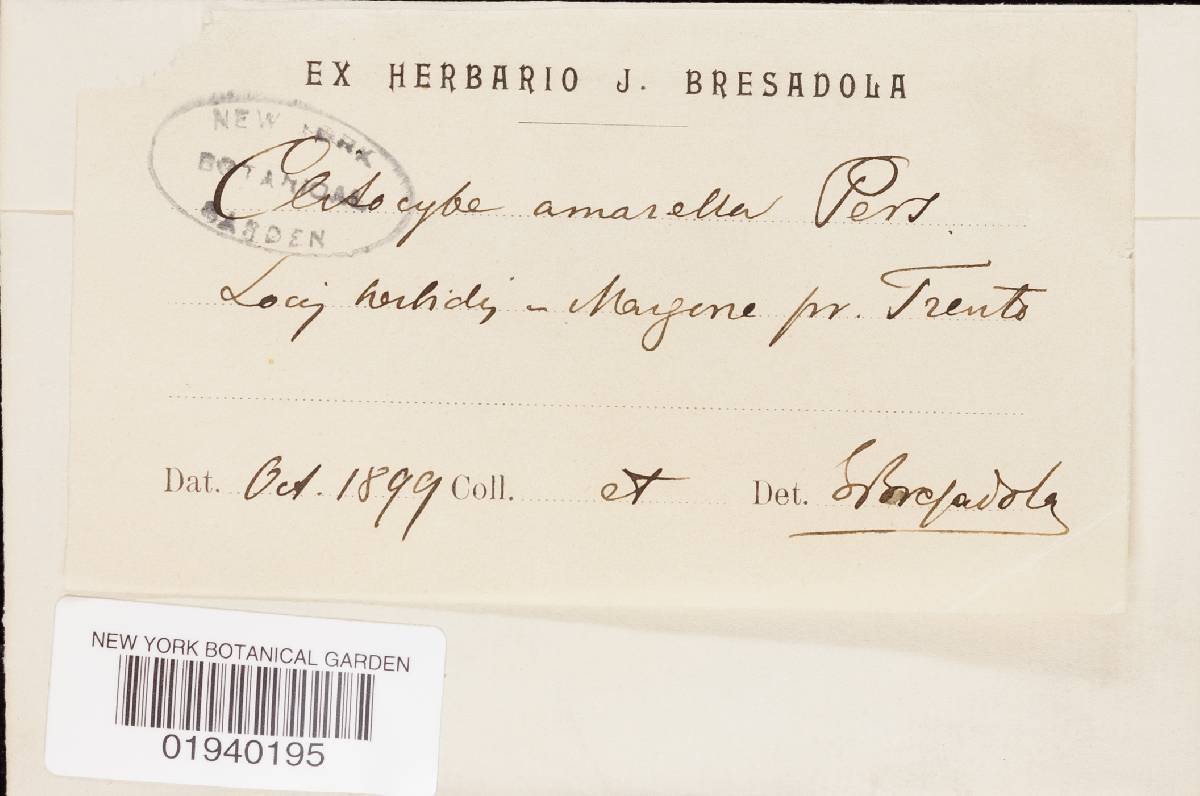 EX HERBARIO J. BRESADOLA
NEW YORK
BOTANICAL
GARDEN
Clitocybe amarella Pers.
Locis herbidis - Margone pr. Trento
Dat. Oct. 1899 Coll. et Det. Bresadola
NEW YORK BOTANICAL GARDEN
01940195